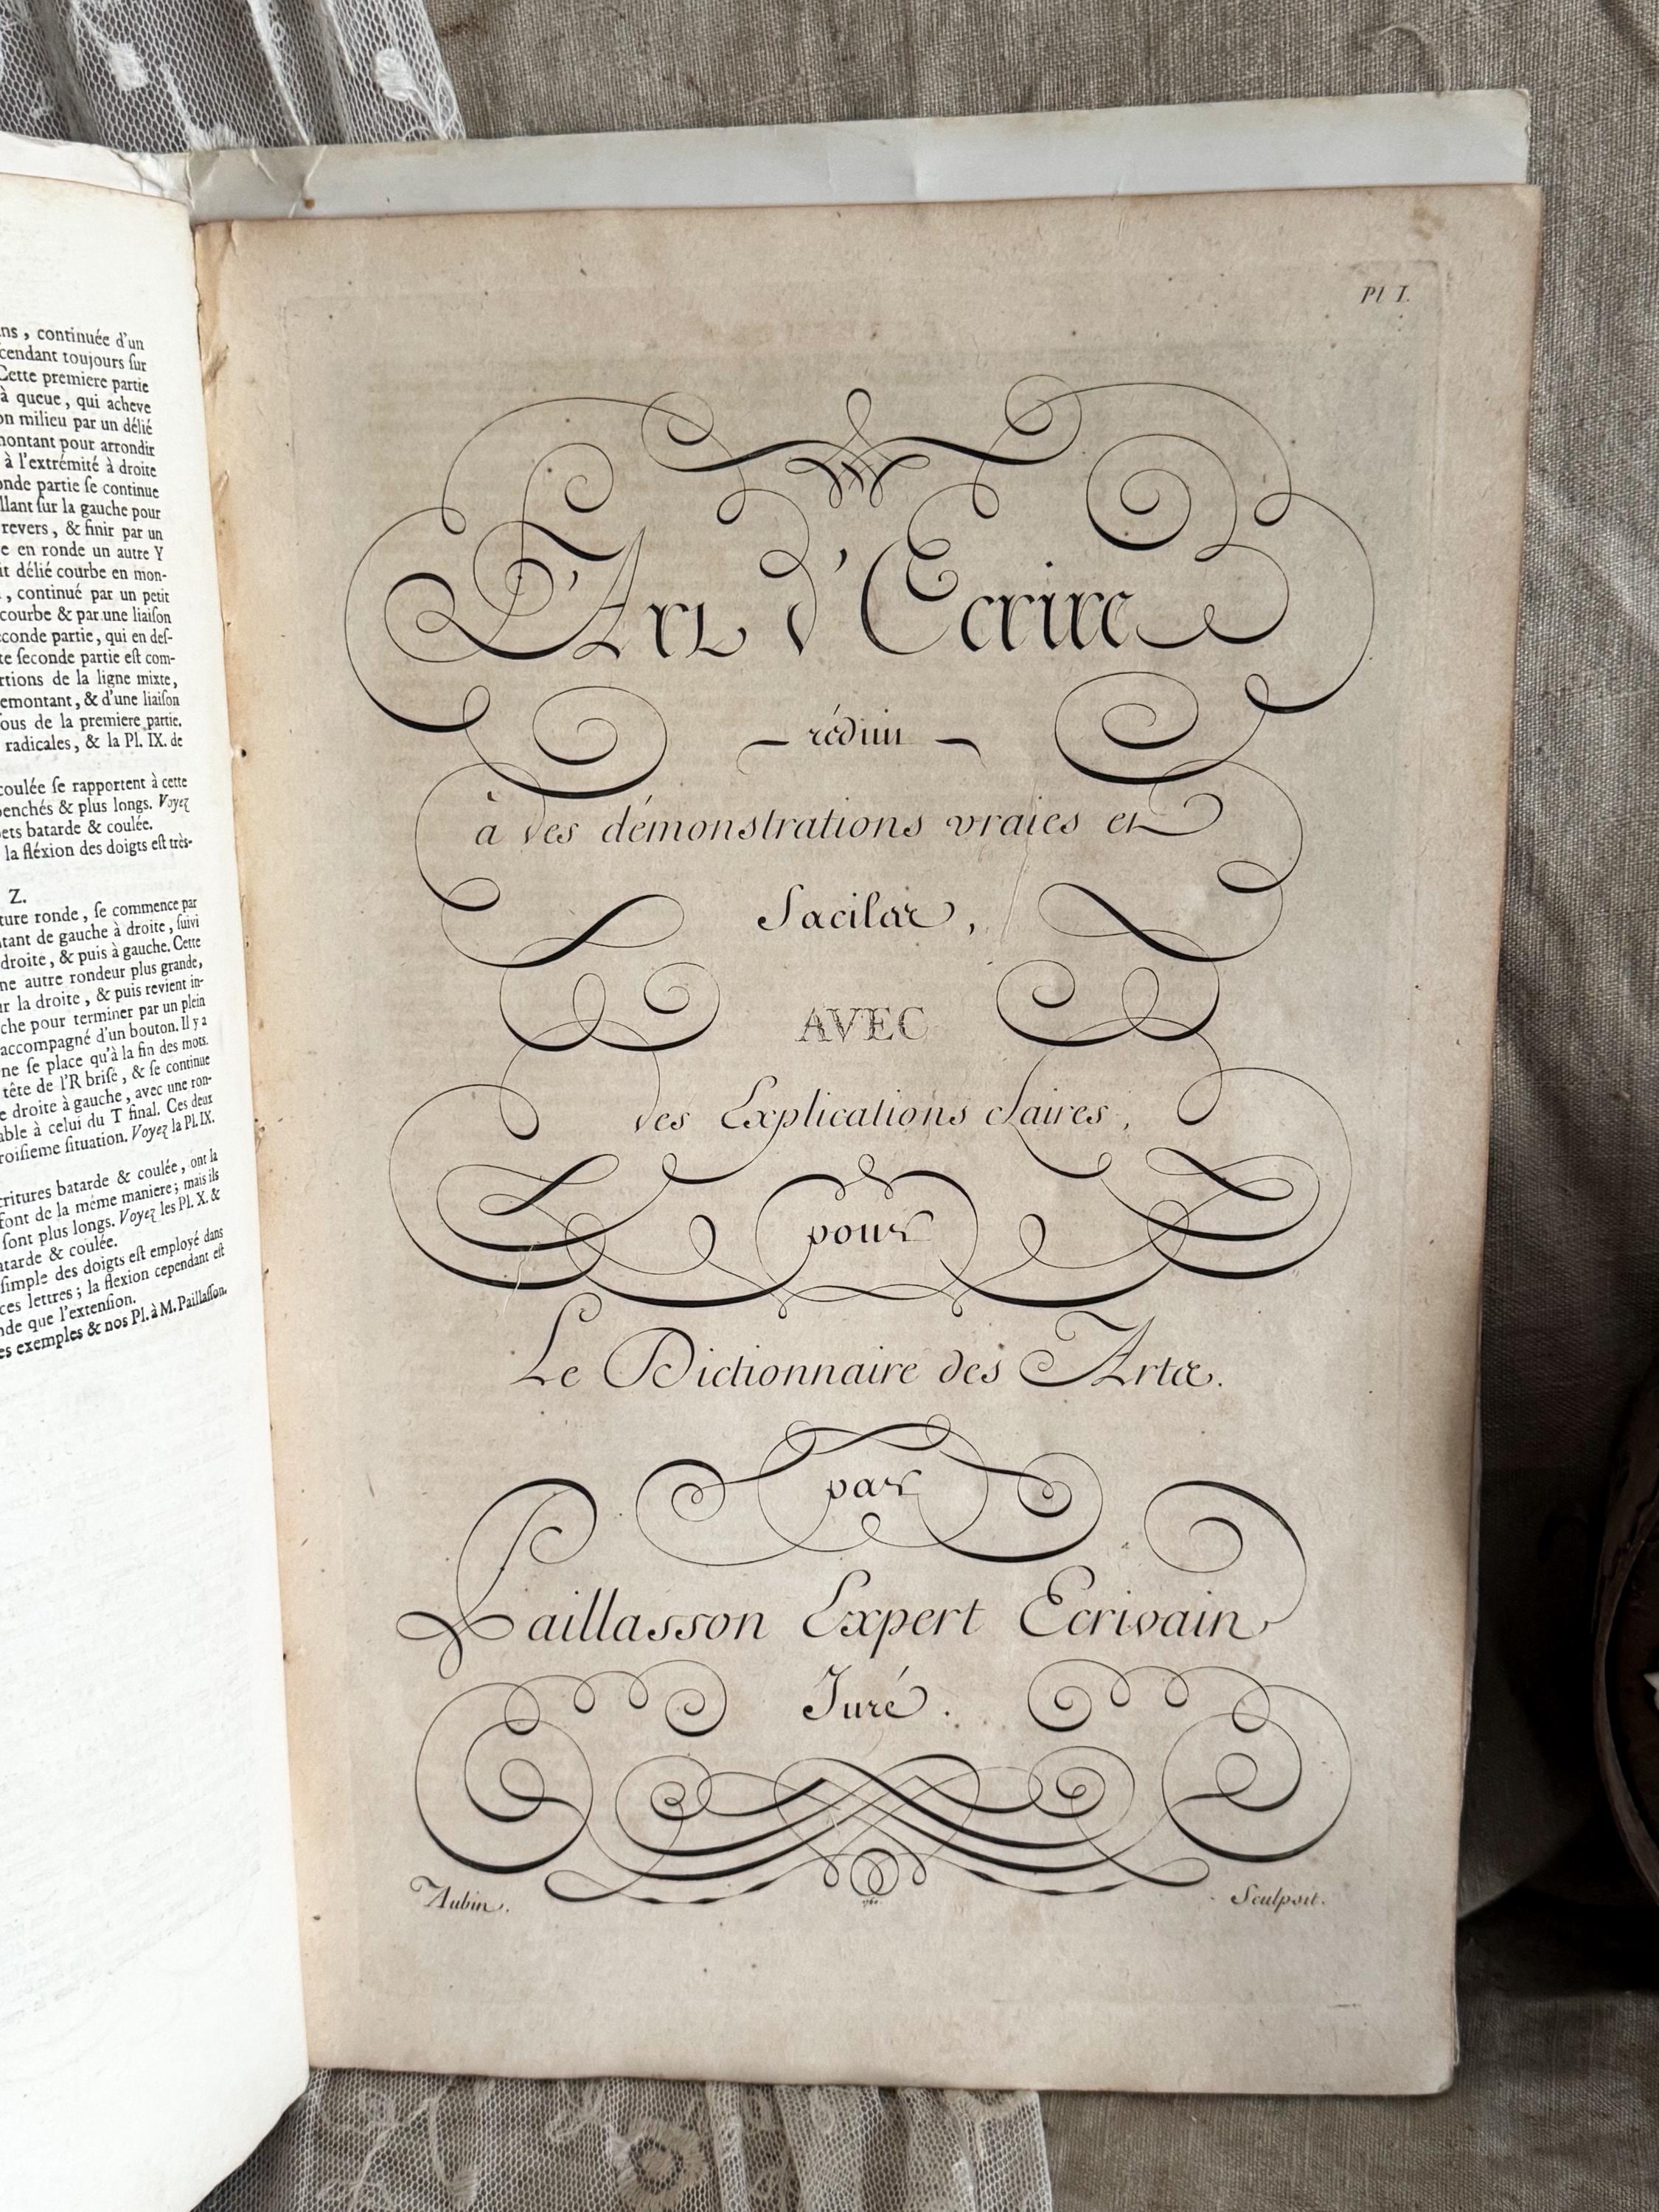 ns, continuée d'un
cendant toujours ſur
Cette premiere partie
à queue, qui acheve
on milieu par un délié
montant pour arrondir
à l'extrémité à droite
onde partie ſe continue
llant ſur la gauche pour
revers, & finir par un
e en ronde un autre Y
it délié courbe en mon-
, continué par un petit
courbe & par une liaiſon
ſeconde partie, qui en deſ-
te ſeconde partie eſt com-
rtions de la ligne mixte,
remontant, & d'une liaiſon
ſous de la premiere partie.
radicales, & la Pl. IX. de
coulée ſe rapportent à cette
penchés & plus longs. Voyez
ets batarde & coulée.
la fléxion des doigts eſt très-
Z.
ture ronde, ſe commence par
tant de gauche à droite, ſuivi
droite, & puis à gauche. Cette
ne autre rondeur plus grande,
ur la droite, & puis revient in-
che pour terminer par un plein
accompagné d'un bouton. Il y a
ne ſe place qu'à la fin des mots.
tête de l'R briſé, & ſe continue
e droite à gauche, avec une ron-
able à celui du T final. Ces deux
roiſieme ſituation. Voyez la Pl. IX.
critures batarde & coulée, ont la
font de la même maniere; mais ils
ſont plus longs. Voyez les Pl. X. &
atarde & coulée.
ſimple des doigts eſt employé dans
ces lettres; la flexion cependant eſt
nde que l'extenſion.
es exemples & nos Pl. à M. Paillaſſon.
Pl I.
L'Art d'Ecrire
réduit
à des démonstrations vraies et
faciles,
AVEC
des Explications claires,
pour
Le Dictionnaire des Arts.
par
Paillasson Expert Ecrivain
Juré.
Aubin. Sculpsit.